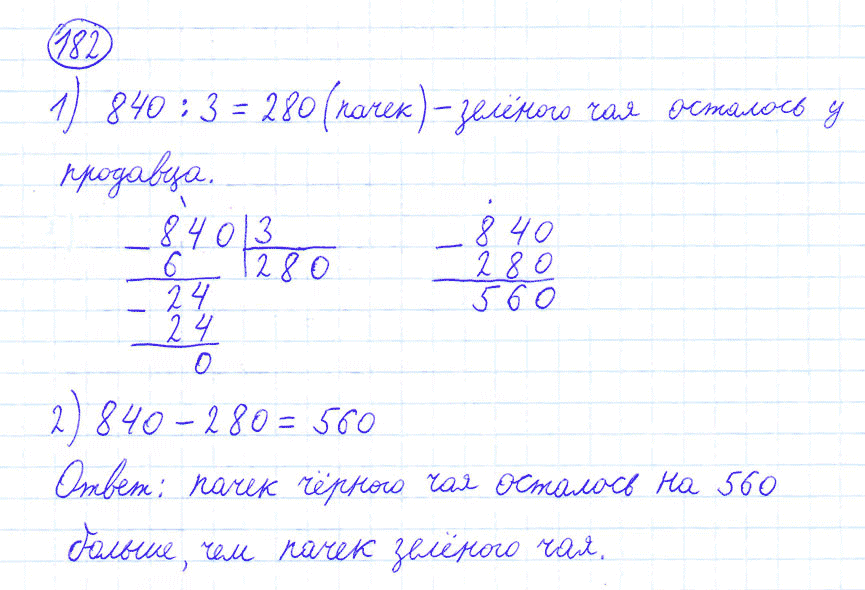 182
1) 840 : 3 = 280 (пачек) – зелёного чая осталось у
продавца.
– 840 | 3
6 | 280
– 24
24
0
– 840
280
560
2) 840 – 280 = 560
Ответ: пачек чёрного чая осталось на 560
больше, чем пачек зелёного чая.